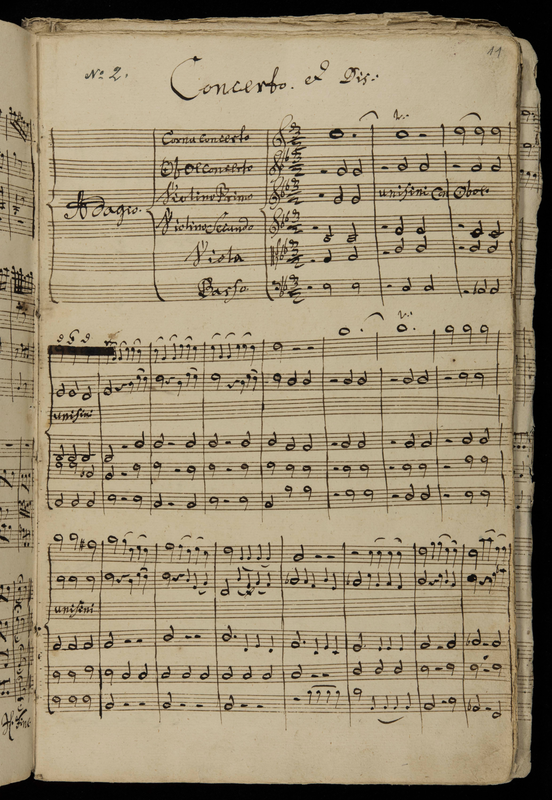 No 2.
Concerto. ex Dis.
11
Adagio.
Corno Concerto
Oboe Concerto
Violino Primo
unisoni Con Oboe
Violino Secundo
Viola
Basso
unisoni
unisoni
Il Fine